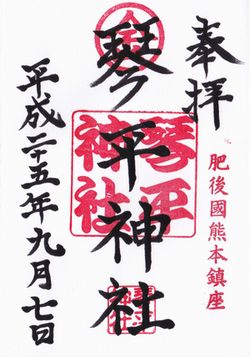 奉拝
肥後國熊本鎮座
金
琴平神社
琴平
神社
平成二十五年九月七日